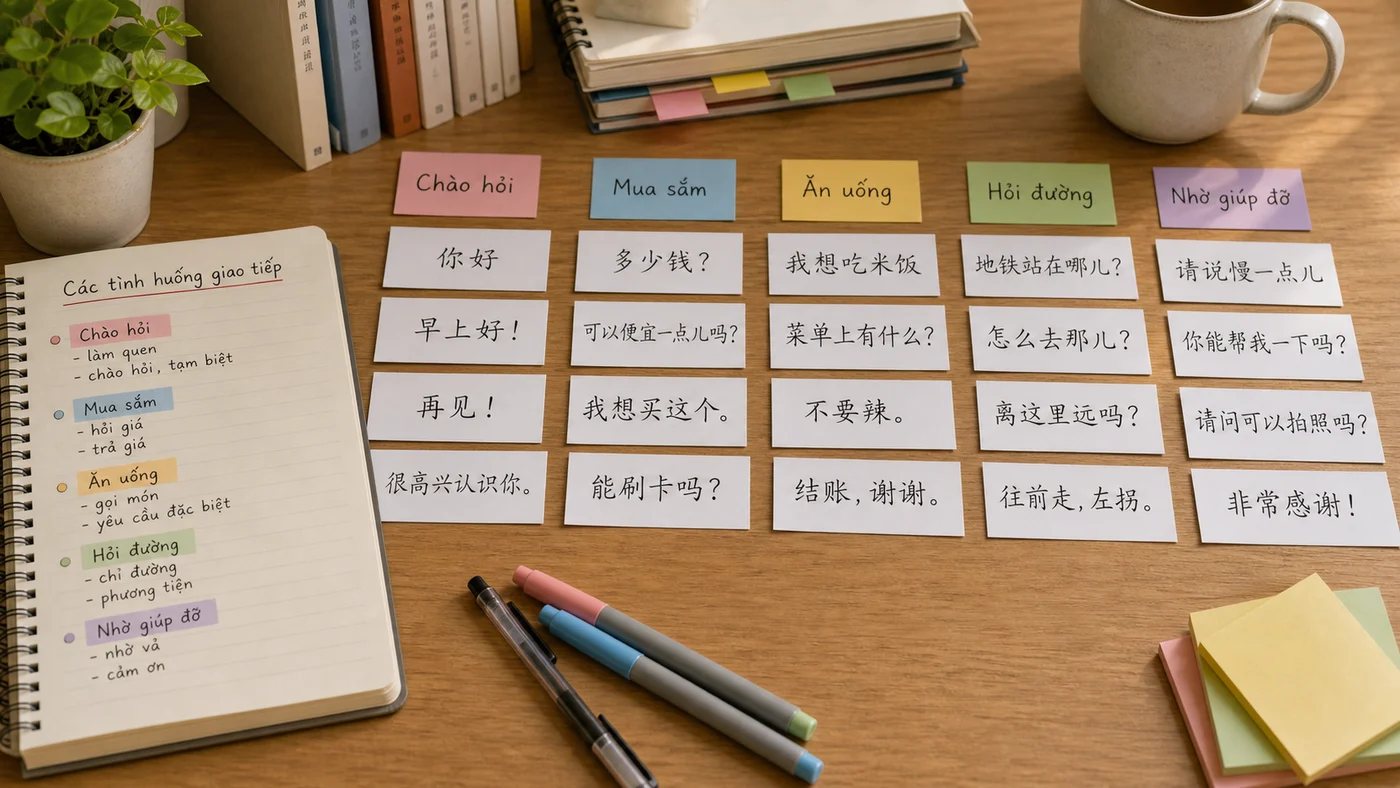 Các tình huống giao tiếp
Chào hỏi
- làm quen
- chào hỏi, tạm biệt
Mua sắm
- hỏi giá
- trả giá
Ăn uống
- gọi món
- yêu cầu đặc biệt
Hỏi đường
- chỉ đường
- phương tiện
Nhờ giúp đỡ
- nhờ vả
- cảm ơn
Chào hỏi
你好
早上好！
再见！
很高兴认识你。
Mua sắm
多少钱？
可以便宜一点儿吗？
我想买这个。
能刷卡吗？
Ăn uống
我想吃米饭
菜单上有什么？
不要辣。
结账，谢谢。
Hỏi đường
地铁站在哪儿？
怎么去那儿？
离这里远吗？
往前走，左拐。
Nhờ giúp đỡ
请说慢一点儿
你能帮我一下吗？
请问可以拍照吗？
非常感谢！